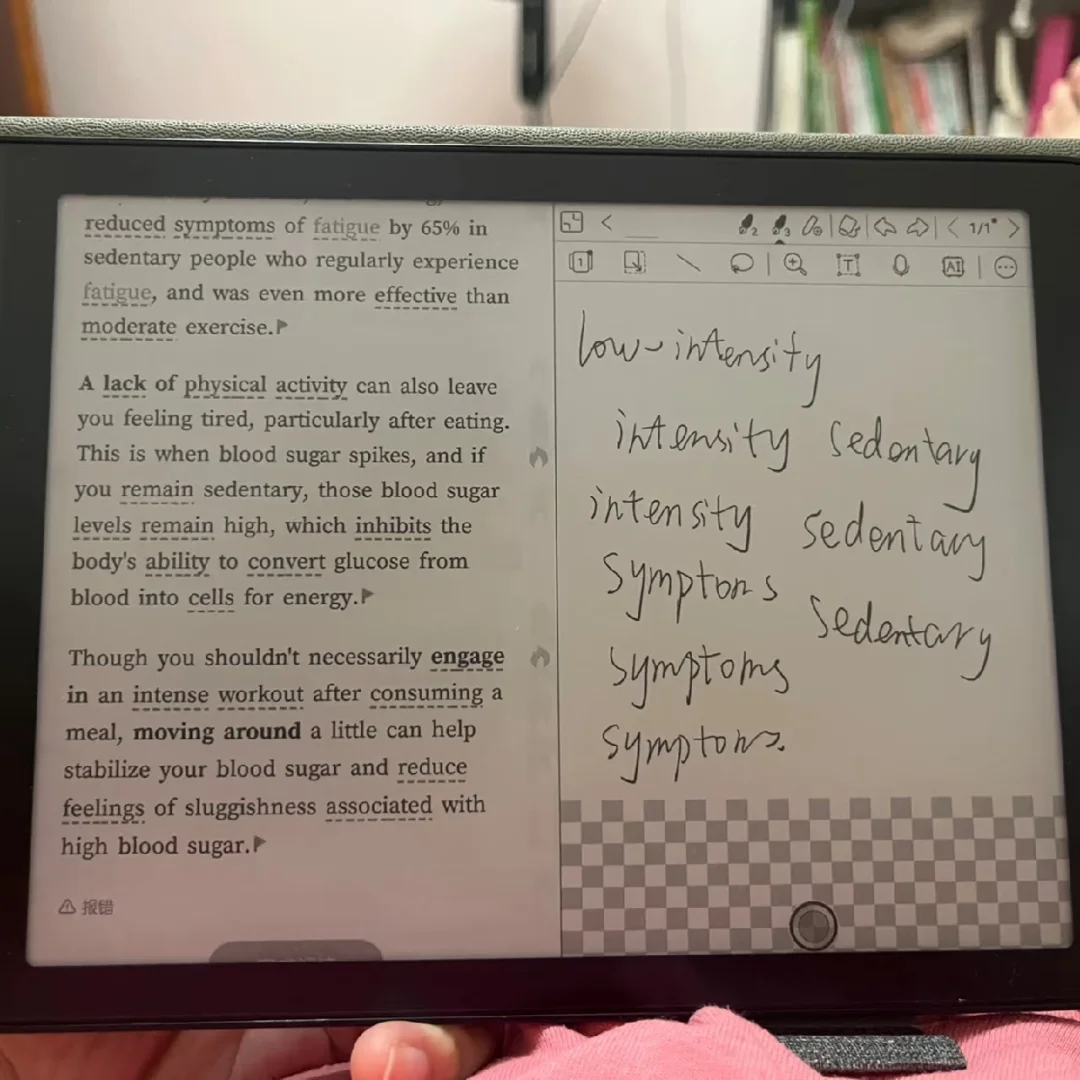 reduced symptoms of fatigue by 65% in
sedentary people who regularly experience
fatigue, and was even more effective than
moderate exercise.
A lack of physical activity can also leave
you feeling tired, particularly after eating.
This is when blood sugar spikes, and if
you remain sedentary, those blood sugar
levels remain high, which inhibits the
body's ability to convert glucose from
blood into cells for energy.
Though you shouldn't necessarily engage
in an intense workout after consuming a
meal, moving around a little can help
stabilize your blood sugar and reduce
feelings of sluggishness associated with
high blood sugar.
报错
2 3 1/1
1 T AI
low-intensity
intensity sedentary
intensity sedentary
symptoms
sedentary
symptoms
symptoms.